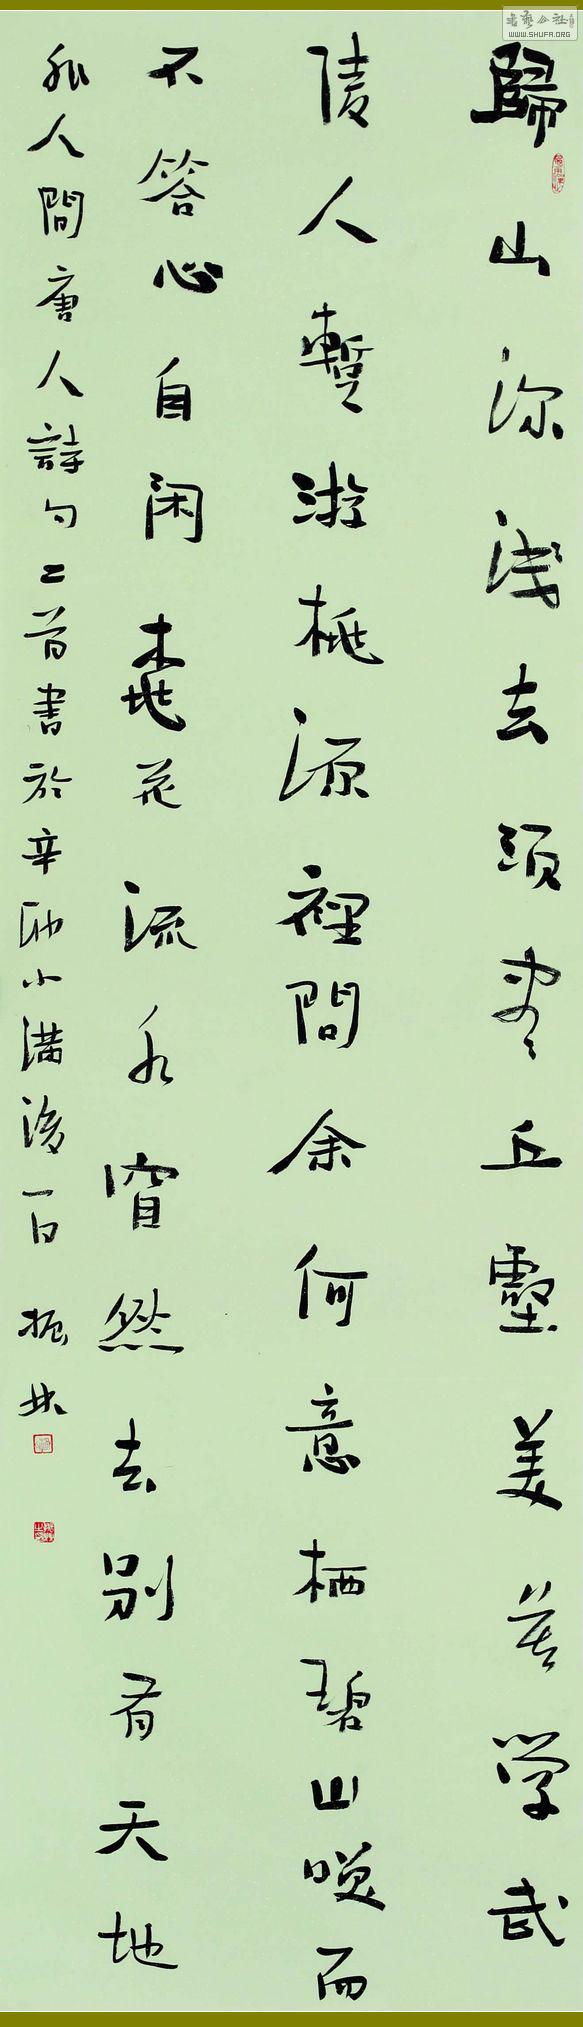 書藝公社
WWW.SHUFA.ORG
歸山深浅去須盡丘壑美莫学武
陵人暫游桃源裡問余何意栖碧山笑而
不答心自闲桃花流水窅然去别有天地
非人間唐人詩句二首書於辛卯小满後一日振